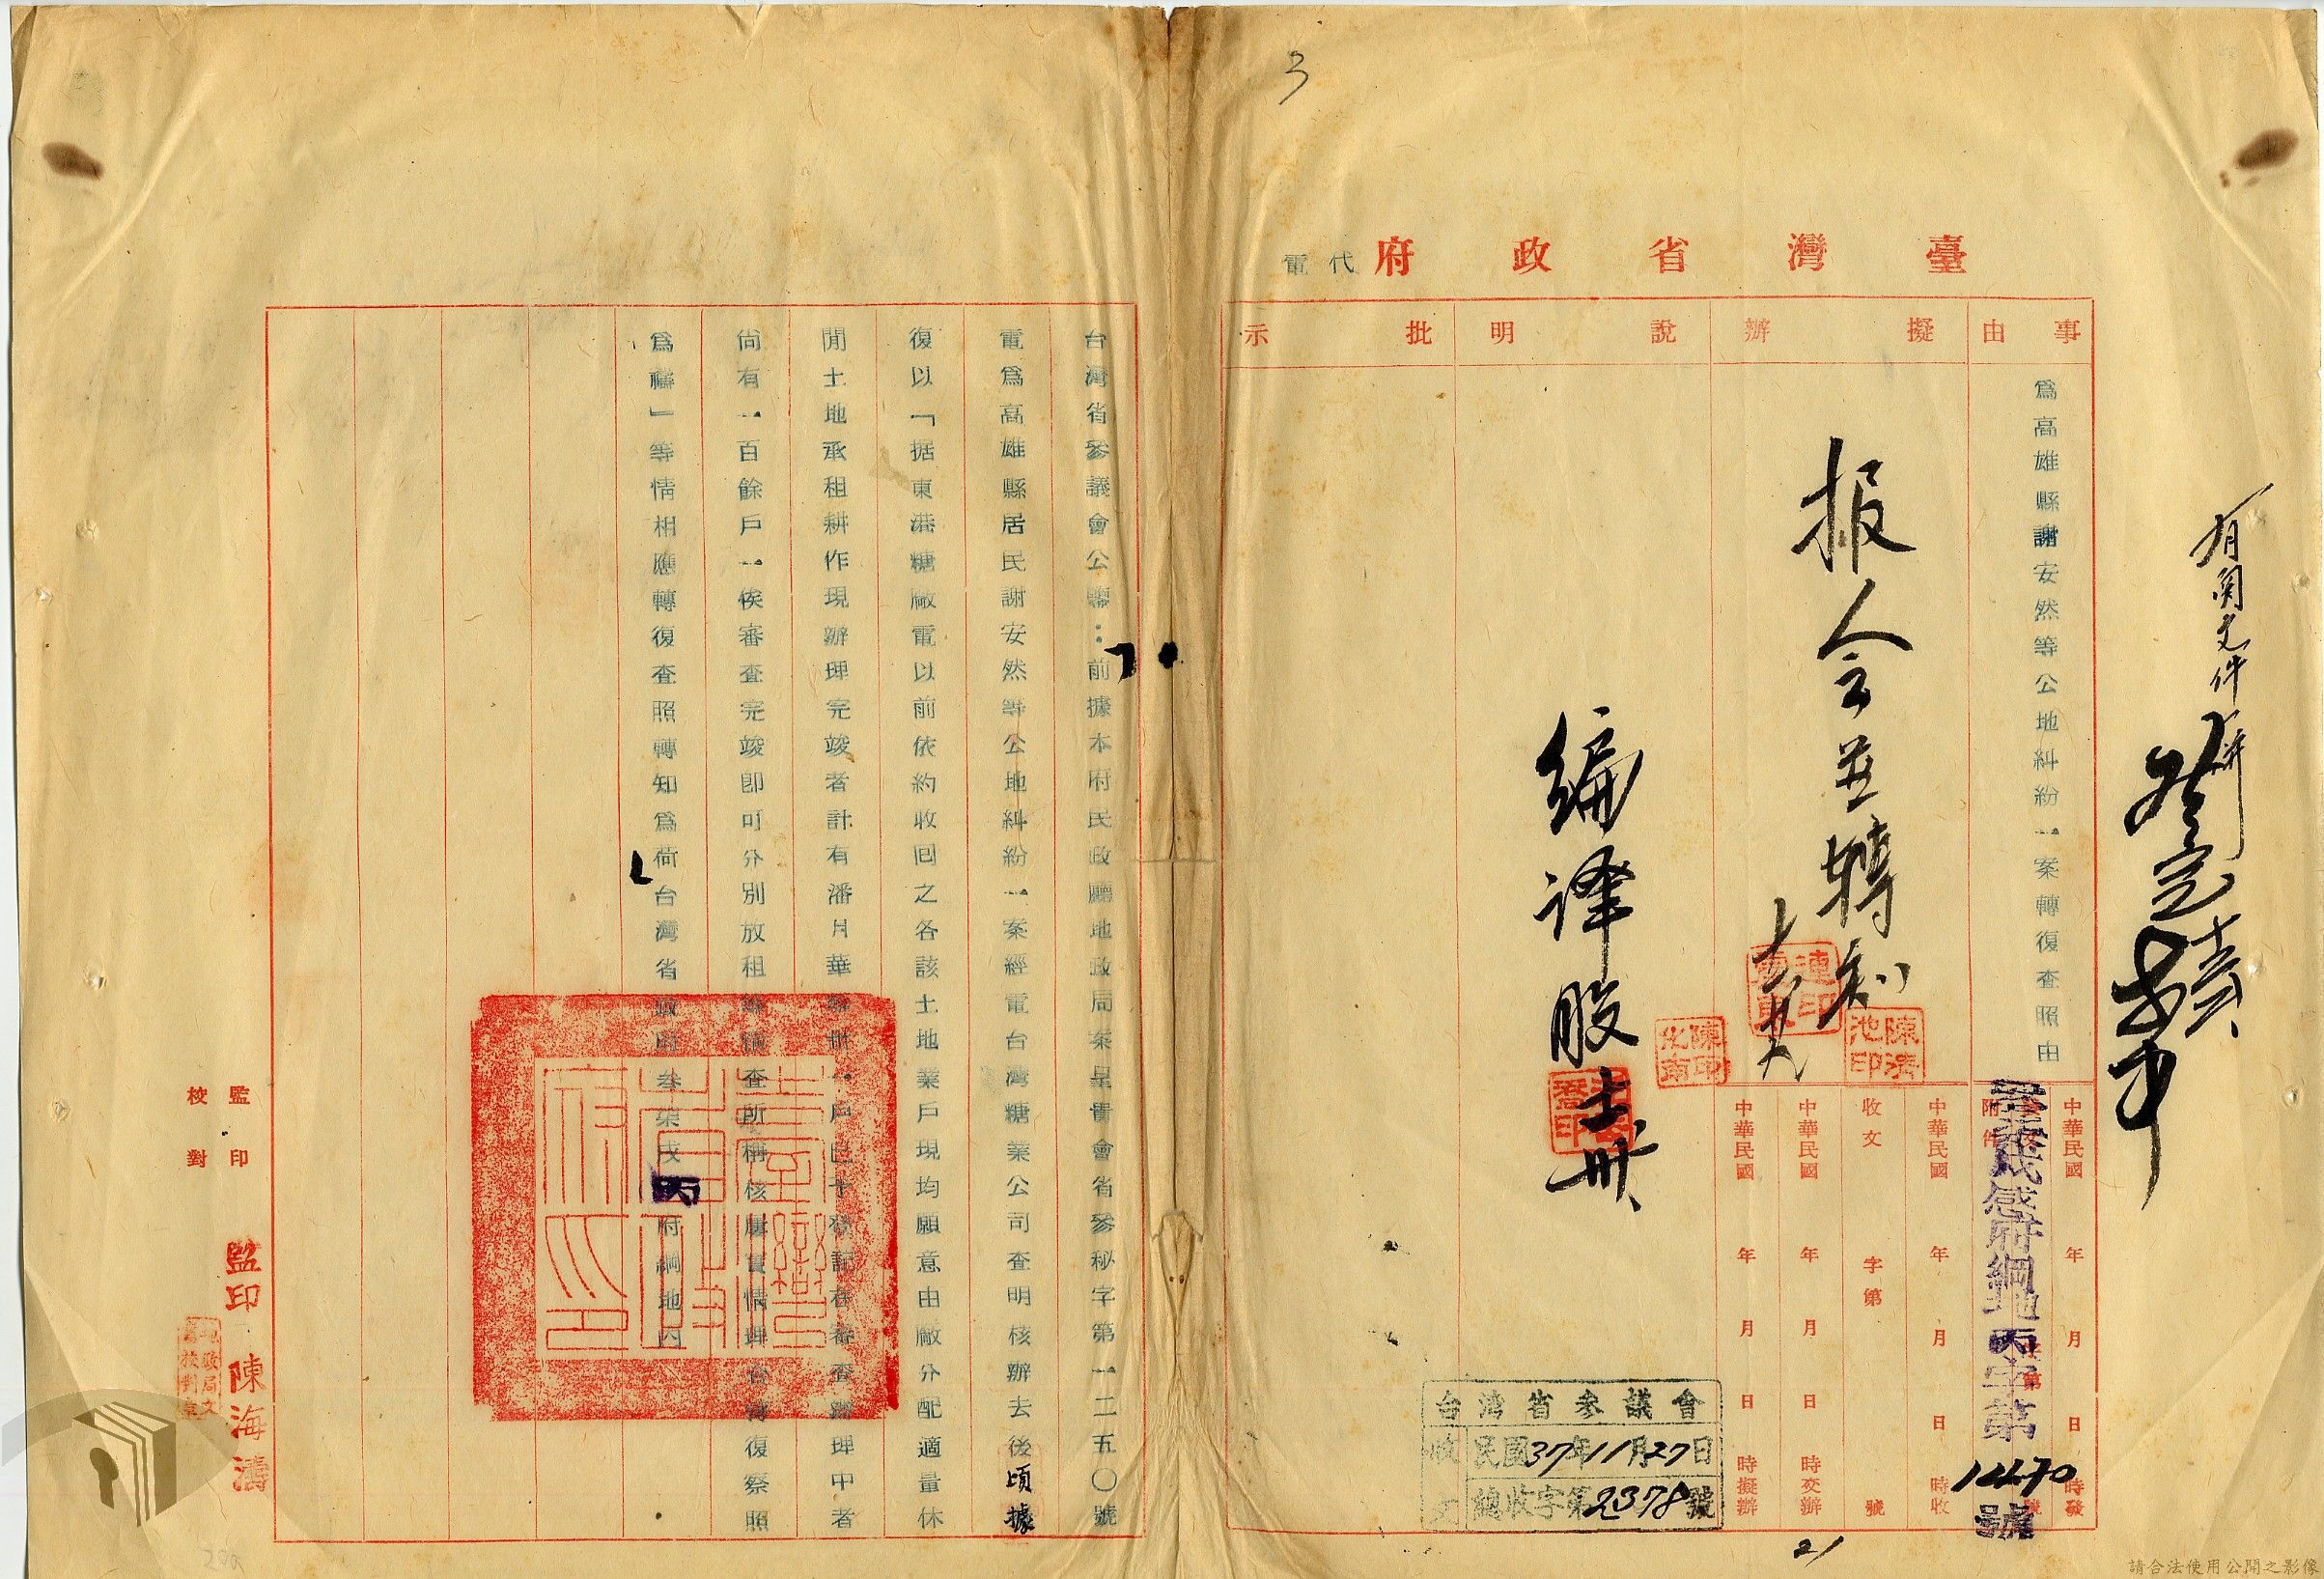 3
臺灣省政府代電
事由
爲高雄縣謝安然等公地糾紛一案轉復查照由
擬辦
報会並轉知
說明
編譯股
批示
有關文件
中華民國 年 月 日 時發
附件
府綱地丙字第14470號
中華民國 年 月 日 時收
收文 字第 號
中華民國 年 月 日 時交辦
中華民國 年 月 日 時擬辦
陳清池印
台灣省參議會
收文
民國37年11月27日
總收字第2378號
21
台灣省參議會公鑒：前據本府民政廳地政局案呈貴會省參秘字第一二五〇號
電爲高雄縣居民謝安然等公地糾紛一案經電台灣糖業公司查明核辦去後頃據
復以「据東港糖廠電以前依約收回之各該土地業戶現均願意由廠分配適量休
閒土地承租耕作現辦理完竣者計有潘月華等卅八戶已予登記在審查辦理中者
尚有一百餘戶一俟審查完竣即可分別放租等情查所稱核屬實情理合電復察照
爲禱」等情相應轉復查照轉知爲荷台灣省政府叁柒戌丙府綱地丙
臺灣省政府印
監印
校對
監印 陳海濤
請合法使用公開之影像